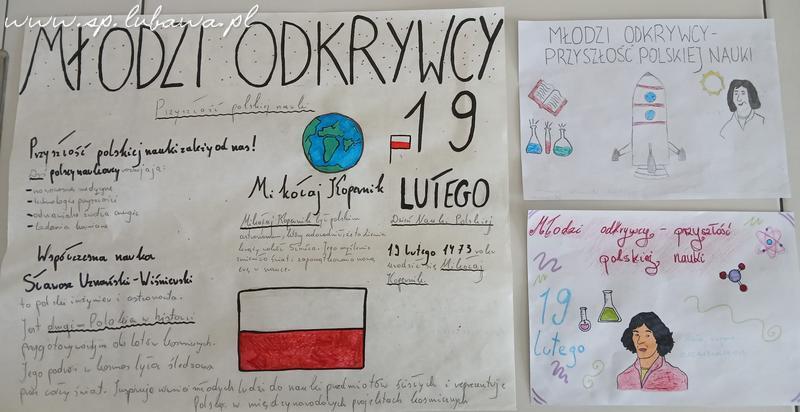 www.sp.lubawa.pl
MŁODZI ODKRYWCY
Przyszłość polskiej nauki
19
LUTEGO
Przyszłość polskiej nauki zależy od nas!
Dziś polscy naukowcy rozwijają:
- nowoczesną medycynę
- technologie przyszłości
- odnawialne źródła energii
- badania kosmiczne
Mikołaj Kopernik
Mikołaj Kopernik był polskim
astronomem, który udowodnił, że to Ziemia
krąży wokół Słońca. Jego myślenie
zmieniło świat i zapoczątkowało nową
erę w nauce.
Dzień Nauki Polskiej
19 lutego 1473 roku
urodził się Mikołaj
Kopernik.
Współczesna nauka
Sławosz Uznański-Wiśniewski
to polski inżynier i astronauta.
Jest drugim Polakiem w historii
przygotowywanym do lotów kosmicznych.
Jego podróż w kosmos była śledzona
przez cały świat. Inspiruje wielu młodych ludzi do nauki przedmiotów ścisłych i reprezentuje
Polskę w międzynarodowych projektach kosmicznych
MŁODZI ODKRYWCY-
PRZYSZŁOŚĆ POLSKIEJ NAUKI
Młodzi odkrywcy - przyszłość
polskiej nauki
19
lutego